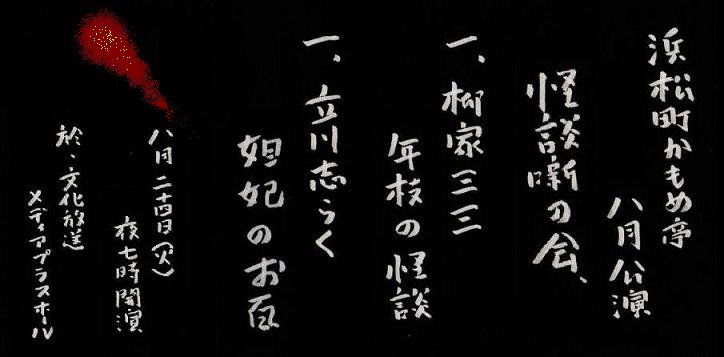 浜松町かもめ亭
八月公演
怪談噺の会、
一、柳家三三
年枝の怪談
一、立川志らく
妲妃のお百
八月二十四日(火)
夜七時開演
於、文化放送
メディアプラスホール